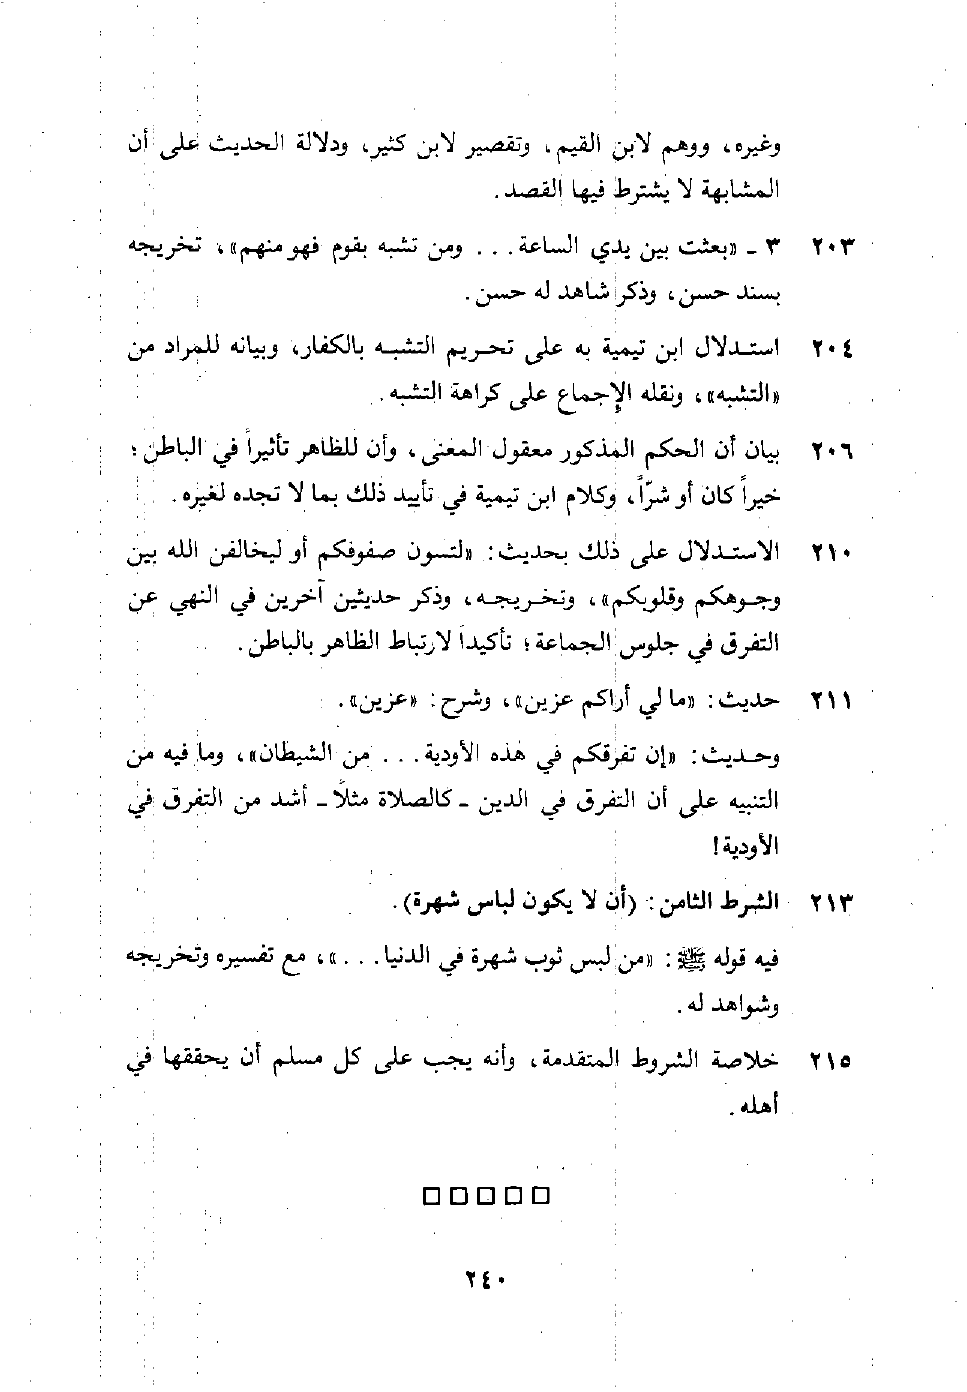 وغيره، ووهم لابن القيم، وتقصير لابن كثير، ودلالة الحديث على أن
المشابهة لا يشترط فيها القصد.
٢٠٣ ٣ ـ «بعثت بين يدي الساعة... ومن تشبه بقوم فهو منهم»، تخريجه
بسند حسن، وذكر شاهد له حسن.
٢٠٤ استدلال ابن تيمية به على تحريم التشبه بالكفار، وبيانه للمراد من
«التشبه»، ونقله الإجماع على كراهة التشبه.
٢٠٦ بيان أن الحكم المذكور معقول المعنى، وأن للظاهر تأثيراً في الباطن؛
خيراً كان أو شرّاً، وكلام ابن تيمية في تأييد ذلك بما لا تجده لغيره.
٢١٠ الاستدلال على ذلك بحديث: «لتسون صفوفكم أو ليخالفن الله بين
وجوهكم وقلوبكم»، وتخريجه، وذكر حديثين آخرين في النهي عن
التفرق في جلوس الجماعة؛ تأكيداً لارتباط الظاهر بالباطن.
٢١١ حديث: «ما لي أراكم عزين»، وشرح: «عزين».
وحديث: «إن تفرقكم في هذه الأودية... من الشيطان»، وما فيه من
التنبيه على أن التفرق في الدين ـ كالصلاة مثلاً ـ أشد من التفرق في
الأودية!
٢١٣ الشرط الثامن: (أن لا يكون لباس شهرة).
فيه قوله ﷺ: «من لبس ثوب شهرة في الدنيا...»، مع تفسيره وتخريجه
وشواهد له.
٢١٥ خلاصة الشروط المتقدمة، وأنه يجب على كل مسلم أن يحققها في
أهله.
٢٤٠